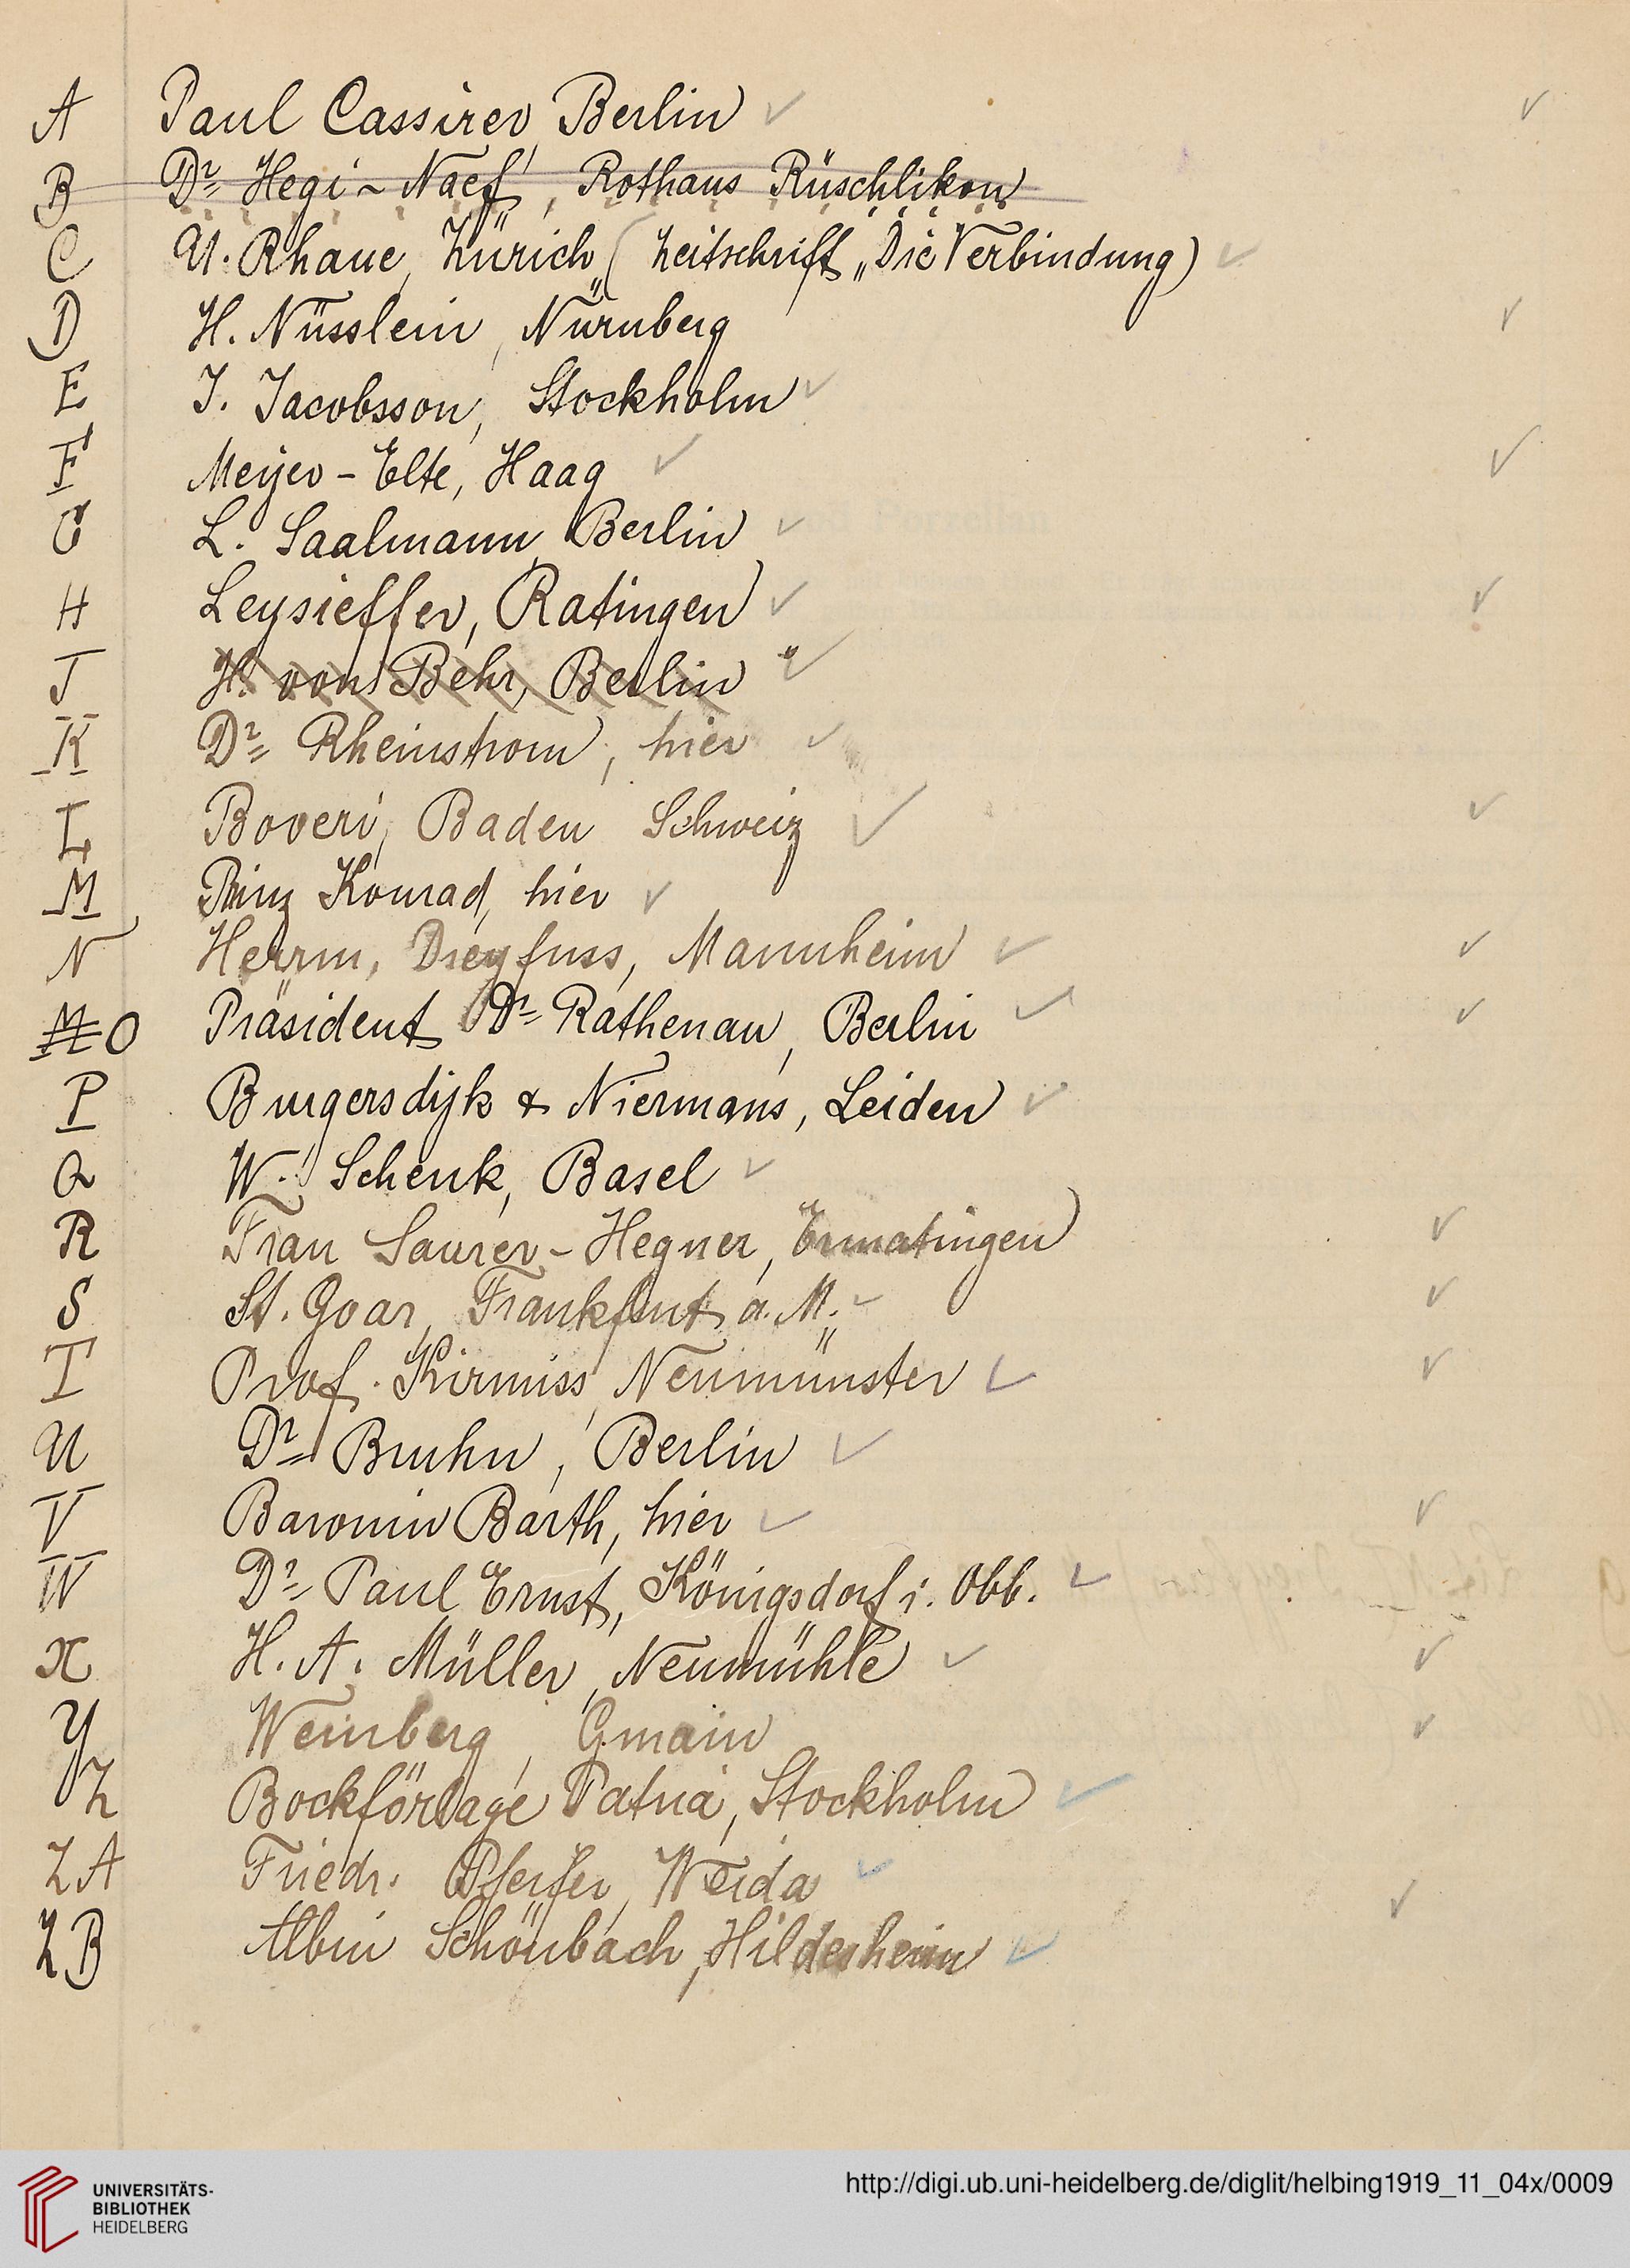 A Paul Cassirer, Berlin ✓ ✓
B Dr Hegi-Naef, Rothaus Rüschlikon
C U. Rhaue, Zürich (Zeitschrift „Die Verbindung) ✓
D H. Nüsslein, Nürnberg ✓
E J. Jacobsson, Stockholm ✓
F Meijer-Elte, Haag ✓ ✓
G L. Saalmann, Berlin ✓
H Leysieffer, Ratingen ✓ ✓
J H. von Behr, Berlin ✓
K Dr Rheinstrom, hier ✓
L Boveri, Baden Schweiz ✓ ✓
M Prinz Konrad, hier ✓
N Herrm. Dreyfuss, Mannheim ✓ ✓
O Präsident Dr Rathenau, Berlin ✓ ✓
P Burgersdijk & Niermans, Leiden ✓
Q W. Schenk, Basel ✓
R Frau Saurer-Hegner, Ermatingen ✓
S St. Goar, Frankfurt a. M. ✓ ✓
T Prof. Kirmiss, Neumünster ✓ ✓
U Dr Bruhn, Berlin ✓
V Baronin Barth, hier ✓ ✓
W Dr Paul Ernst, Königsdorf i. Obb. ✓
X H. A. Müller, Neumühle ✓ ✓
Y Weinberg, Gmain ✓
Z Bockförlage Patria, Stockholm ✓
ZA Friedr. Pfeifer, Weida ✓
ZB Albin Schönbach, Hildesheim ✓ ✓
UNIVERSITÄTS-
BIBLIOTHEK
HEIDELBERG
http://digi.ub.uni-heidelberg.de/diglit/helbing1919_11_04x/0009